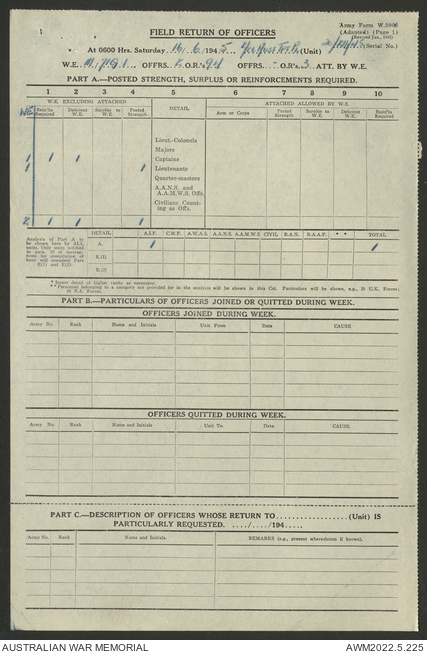 Army Form W.3006
(Adapted) (Page 1)
FIELD RETURN OF OFFICERS
At 0600 Hrs. Saturday 16. 6. 1945 (Unit) (Serial No.)
W.E. OFFRS. O.R's 94 OFFRS. - O.R's 3 ATT. BY W.E.
PART A.—POSTED STRENGTH, SURPLUS OR REINFORCEMENTS REQUIRED.
1 2 3 4 5 6 7 8 9 10
W.E. EXCLUDING ATTACHED DETAIL ATTACHED ALLOWED BY W.E.
WE Rein'ts Required Deficient W.E. Surplus to W.E. Posted Strength Arm or Corps Posted Strength Surplus to W.E. Deficient W.E. Rein'ts Required
Lieut.-Colonels
Majors
1 1 1 Captains
1 1 Lieutenants
Quarter-masters
A.A.N.S. and
A.A.M.W.S. Offs.
Civilians Count-
ing as Offs.
2 1 1 1
Analysis of Part A to be shown here by ALL units. DETAIL A.I.F. C.M.F. A.W.A.S. A.A.N.S. A.A.M.W.S. CIVIL R.A.N. R.A.A.F. * * TOTAL
A. 1 1
E.(1)
E.(2)
* Insert detail of higher ranks as necessary.
** Personnel belonging to a category not provided for in the analysis will be shown in this Col. Particulars will be shown, e.g., 20 U.K. Forces;
N.Z. Forces.
PART B.—PARTICULARS OF OFFICERS JOINED OR QUITTED DURING WEEK.
OFFICERS JOINED DURING WEEK.
Army No. Rank Name and Initials Unit From Date CAUSE
OFFICERS QUITTED DURING WEEK.
Army No. Rank Name and Initials Unit To. Date. CAUSE.
PART C.—DESCRIPTION OF OFFICERS WHOSE RETURN TO.................(Unit) IS
PARTICULARLY REQUESTED. ..../..../194.....
Army No. Rank Name and Initials. REMARKS (e.g., present whereabouts if known).
AUSTRALIAN WAR MEMORIAL AWM2022.5.225